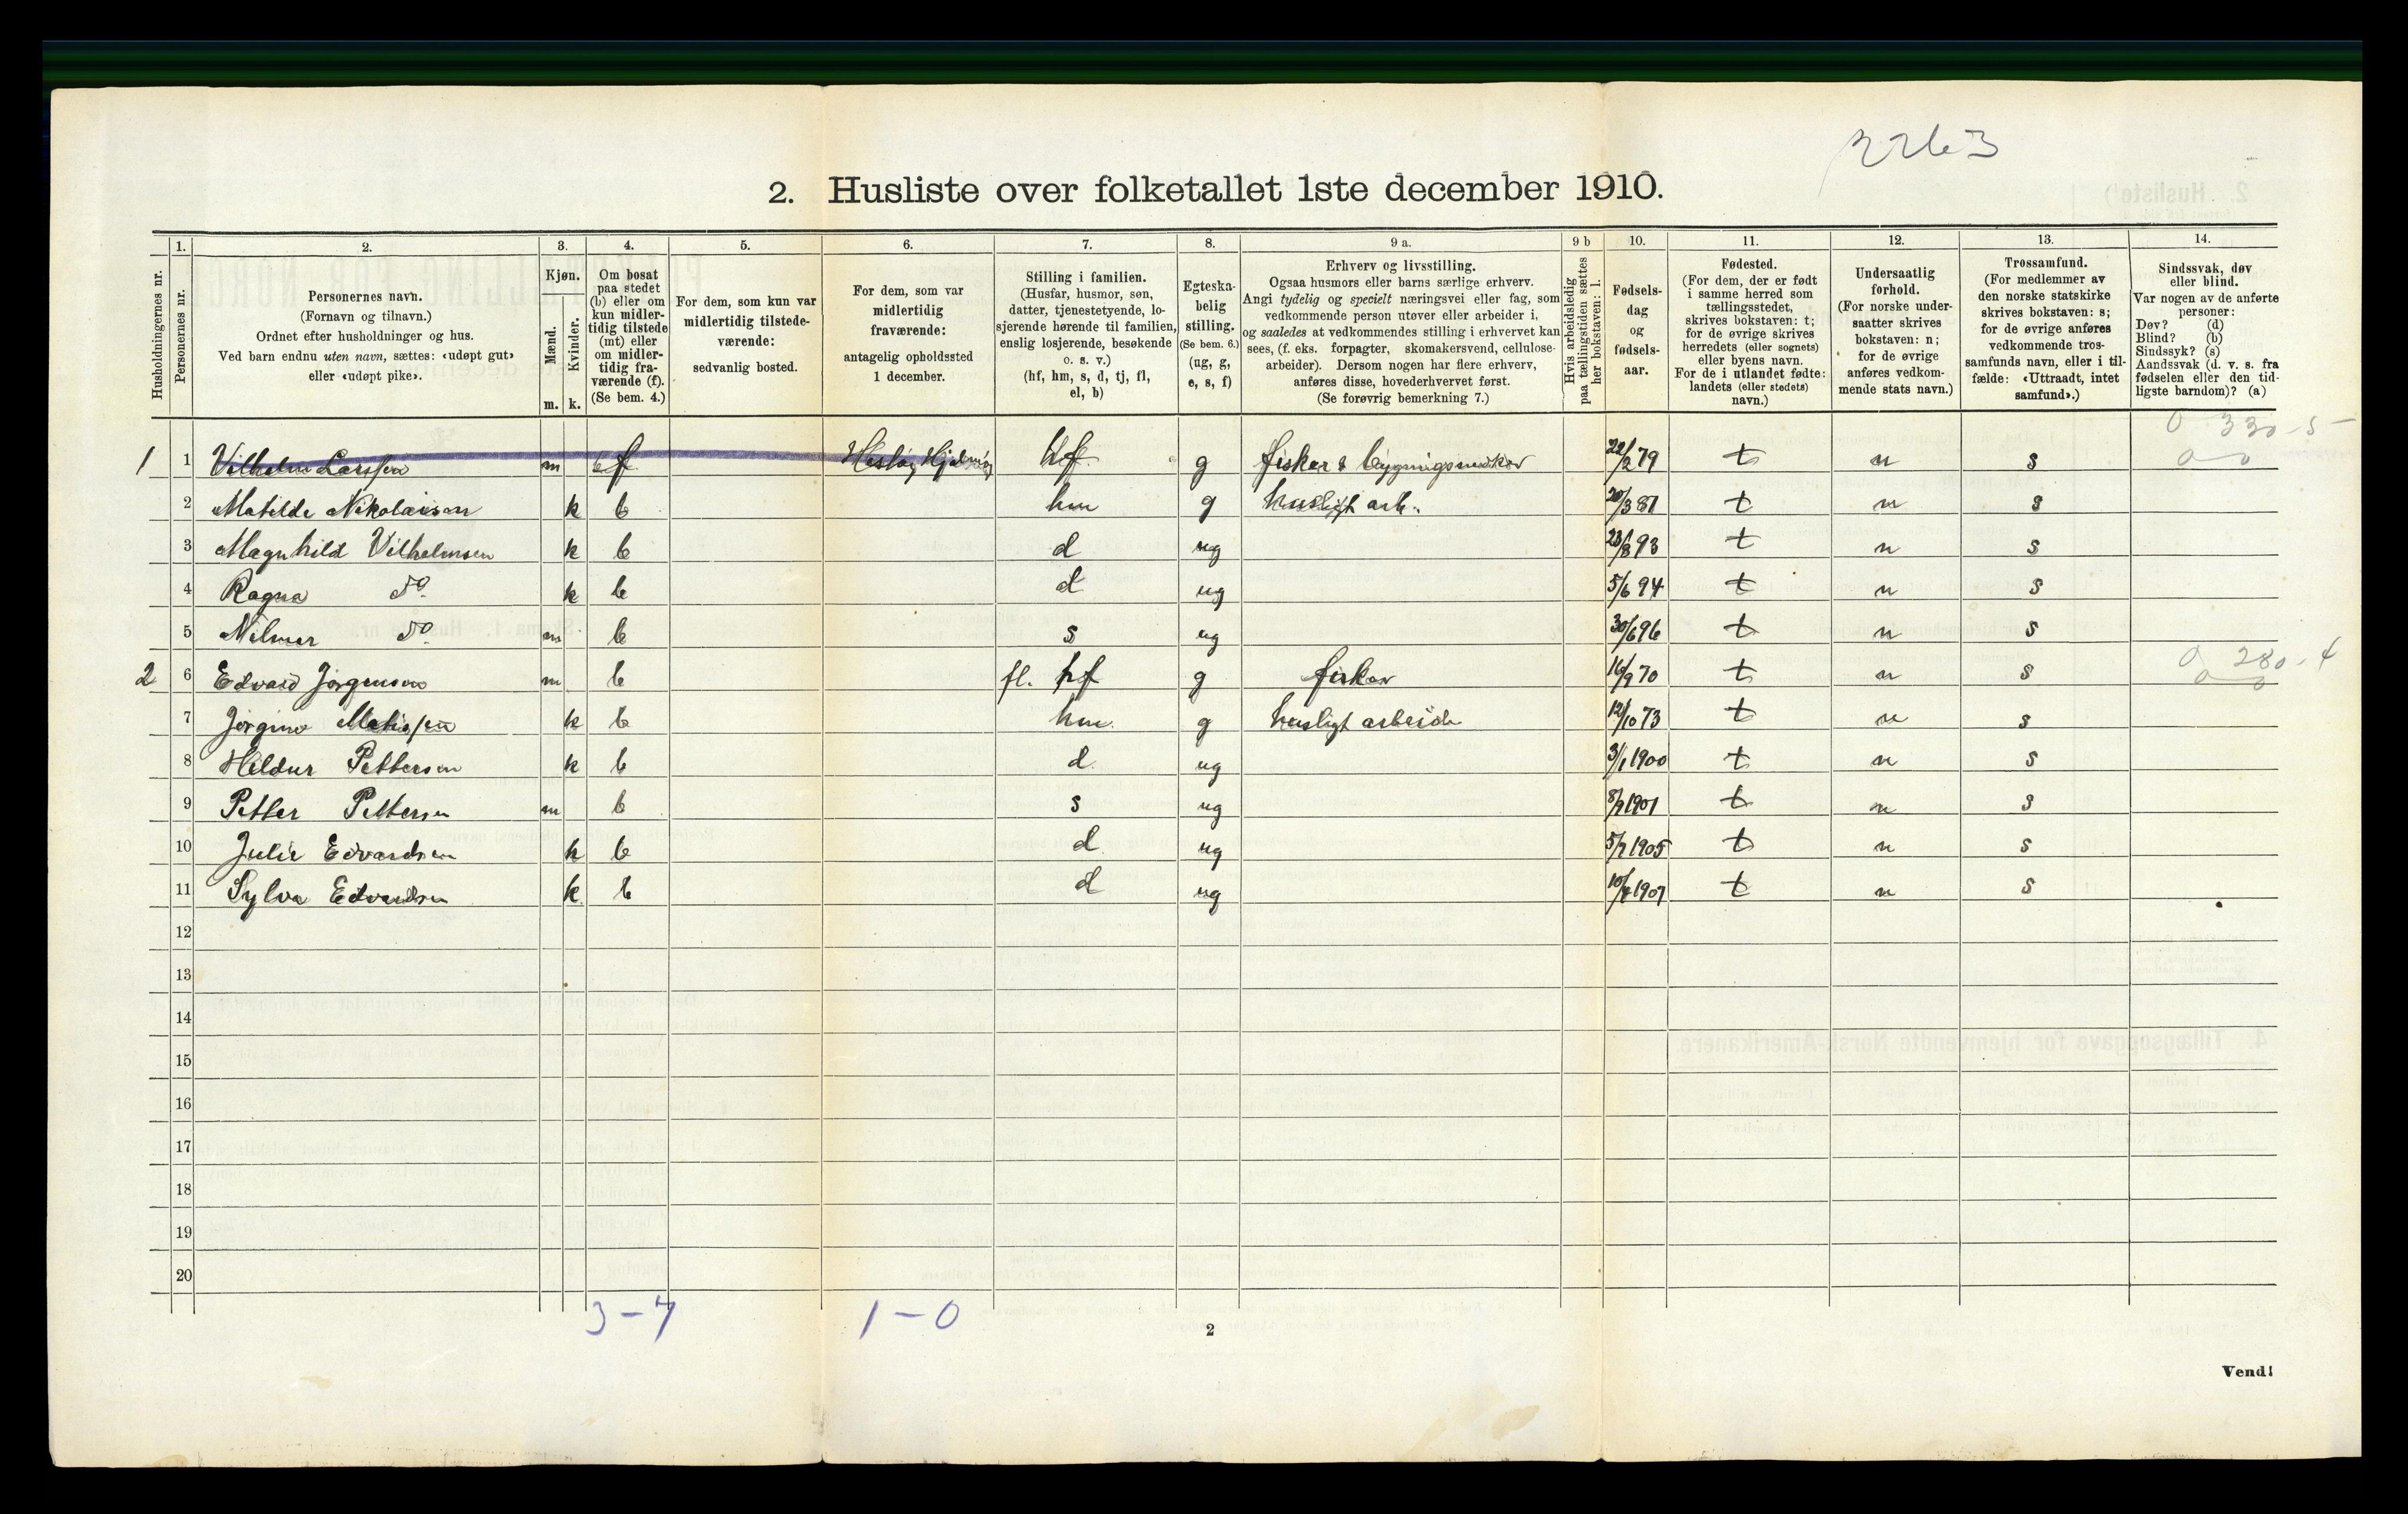 2263
2. Husliste over folketallet 1ste december 1910.
Husholdningernes nr.
1.
Personernes nr.
2.
Personernes navn.
(Fornavn og tilnavn.)
Ordnet efter husholdninger og hus.
Ved barn endnu uten navn, sættes: «udøpt gut»
eller «udøpt pike».
3.
Kjøn.
Mænd.
Kvinder.
m. k.
4.
Om bosat
paa stedet
(b) eller om
kun midler-
tidig tilstede
(mt) eller
om midler-
tidig fra-
værende (f).
(Se bem. 4.)
5.
For dem, som kun var
midlertidig tilstede-
værende:
sedvanlig bosted.
6.
For dem, som var
midlertidig
fraværende:
antagelig opholdssted
1 december.
7.
Stilling i familien.
(Husfar, husmor, søn,
datter, tjenestetyende, lo-
sjerende hørende til familien,
enslig losjerende, besøkende
o. s. v.)
(hf, hm, s, d, tj, fl,
el, b)
8.
Egteska-
belig
stilling.
(Se bem. 6.)
(ug, g,
e, s, f)
9 a.
Erhverv og livsstilling.
Ogsaa husmors eller barns særlige erhverv.
Angi tydelig og specielt næringsvei eller fag, som
vedkommende person utøver eller arbeider i,
og saaledes at vedkommendes stilling i erhvervet kan
sees, (f. eks. forpagter, skomakersvend, cellulose-
arbeider). Dersom nogen har flere erhverv,
anføres disse, hovederhvervet først.
(Se forøvrig bemerkning 7.)
9 b
Hvis arbeidsledig
paa tællingstiden sættes
her bokstaven: l.
10.
Fødsels-
dag
og
fødsels-
aar.
11.
Fødested.
(For dem, der er født
i samme herred som
tællingsstedet,
skrives bokstaven: t;
for de øvrige skrives
herredets (eller sognets)
eller byens navn.
For de i utlandet fødte:
landets (eller stedets)
navn.)
12.
Undersaatlig
forhold.
(For norske under-
saatter skrives
bokstaven: n;
for de øvrige
anføres vedkom-
mende stats navn.)
13.
Trossamfund.
(For medlemmer av
den norske statskirke
skrives bokstaven: s;
for de øvrige anføres
vedkommende tros-
samfunds navn, eller i til-
fælde: «Uttraadt, intet
samfund».)
14.
Sindssvak, døv
eller blind.
Var nogen av de anførte
personer:
Døv? (d)
Blind? (b)
Sindssyk? (s)
Aandssvak (d. v. s. fra
fødselen eller den tid-
ligste barndom)? (a)
0 330-5
1 1 Vilhelm Larssen m f hf g fisker & 22/2 79 t n s 0 0
2 Matilde Nikolaisen k b hm g husligt arb. 20/3 81 t n s
3 Magnhild Vilhelmsen k b d ug 23/8 93 t n s
4 Ragna do. k b d ug 5/6 94 t n s
5 Nilmar do. m b s ug 30/6 96 t n s
0 280-4
2 6 Edvard Jørgensen m b fl. hf g fisker 16/9 70 t n s 0 0
7 Jørgine k b hm. g husligt arbeide 12/10 73 t n s
8 Hildur Pettersen k b d. ug 3/1 1900 t n s
9 Petter Pettersen m b s ug 1901 t n s
10 Julie Edvardsen k b d ug 1905 t n s
11 Sylva Edvardsen k b d ug 1907 t n s
12
13
14
15
16
17
18
19
20
3-7 1-0
2
Vend!